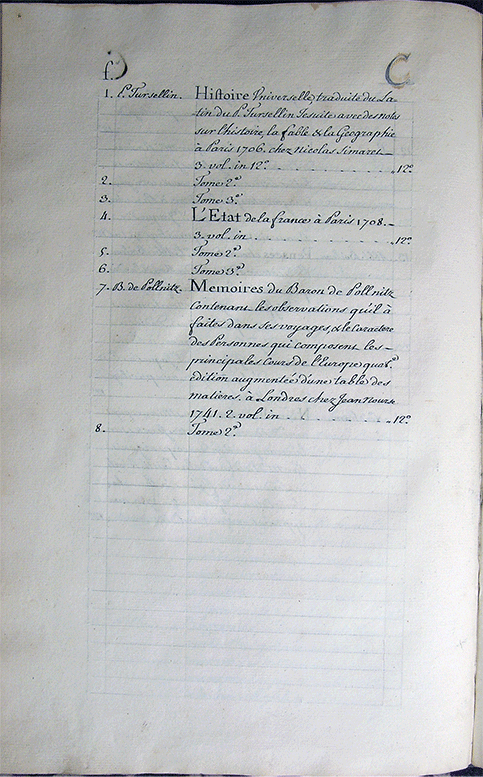 f. C
1. P. Tursellin. Histoire Vniverselle, traduite du La-
tin du P. Tursellin Jesuite avec des notes
sur l'histoire, la fable & la Geographie
à Paris 1706. chez Nicolas Simaret
3. vol. in 12º - 12º
2. Tome 2º
3. Tome 3º
4. L'Etat de la france à Paris 1708. -
3. vol. in - 12º
5. Tome 2º
6. Tome 3º
7. B. de Pollnitz. Memoires du Baron de Pollnitz
contenant les observations qu'il à
faites dans ses voyages, & le caractere
des Personnes qui composent les -
principales Cours de l'Europe quatº
édition augmentée d'une table des
matieres. à Londres chez Jean Nourse
1741. 2. vol. in - 12º
8. Tome 2º